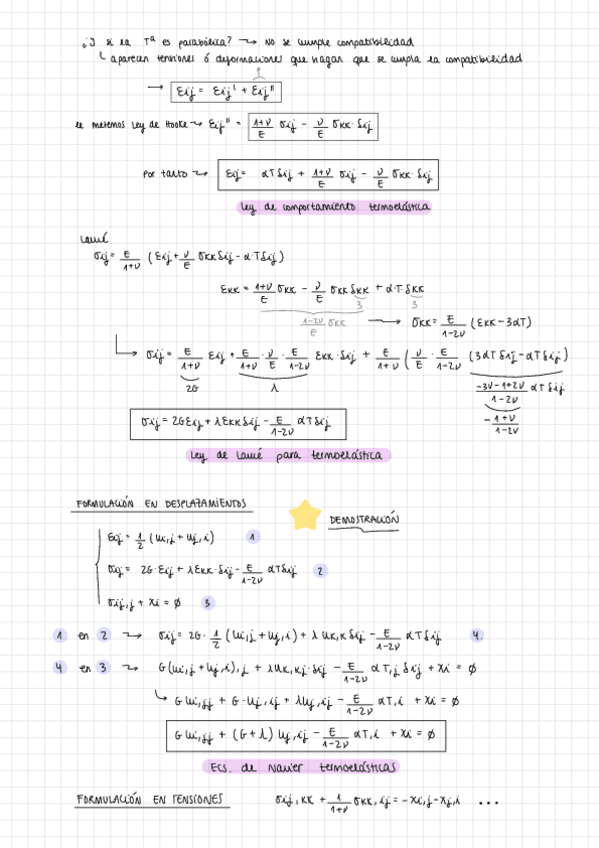 ¿Y si la Tª es parabólica? → No se cumple compatibilidad
↳ aparecen tensiones ó deformaciones que hagan que se cumpla la compatibilidad
→ εij = εij^I + εij^II
le metemos Ley de Hooke → εij^II = (1+ν)/E σij - ν/E σkk·δij
Por tanto → εij = αTδij + (1+ν)/E σij - ν/E σkk·δij
Ley de comportamiento termoelástica
Lamé
σij = E/(1+ν) (εij + ν/E σkkδij - α·Tδij)
εkk = (1+ν)/E σkk - ν/E σkk δkk + α·T·δkk
3 3
(1-2ν)/E σkk → σkk = E/(1-2ν) (εkk - 3αT)
↳ σij = E/(1+ν) εij + E/(1+ν)·ν/E·E/(1-2ν) εkk·δij + E/(1+ν) (ν/E·E/(1-2ν) (3αTδij - αTδij)
2G λ (-3ν-1+2ν)/(1-2ν) αTδij
- (1+ν)/(1-2ν)
σij = 2Gεij + λεkkδij - E/(1-2ν) αTδij
Ley de Lamé para termoelástica
FORMULACIÓN EN DESPLAZAMIENTOS
DEMOSTRACIÓN
εij = 1/2 (ui,j + uj,i) 1
σij = 2G·εij + λεkkδij - E/(1-2ν) αTδij 2
σij,j + xi = ∅ 3
1 en 2 → σij = 2G·1/2 (ui,j + uj,i) + λ uk,k δij - E/(1-2ν) αTδij 4.
4 en 3 → G(ui,j + uj,i),j + λuk,kj·δij - E/(1-2ν) αT,j δij + xi = ∅
↳ G ui,jj + G·uj,ij + λuj,ij - E/(1-2ν) αT,i + xi = ∅
G ui,jj + (G+λ) uj,ij - E/(1-2ν) αT,i + xi = ∅
Ecs. de Navier termoelásticas
FORMULACIÓN EN TENSIONES σij,kk + 1/(1+ν) σkk,ij = -xi,j - xj,i ...